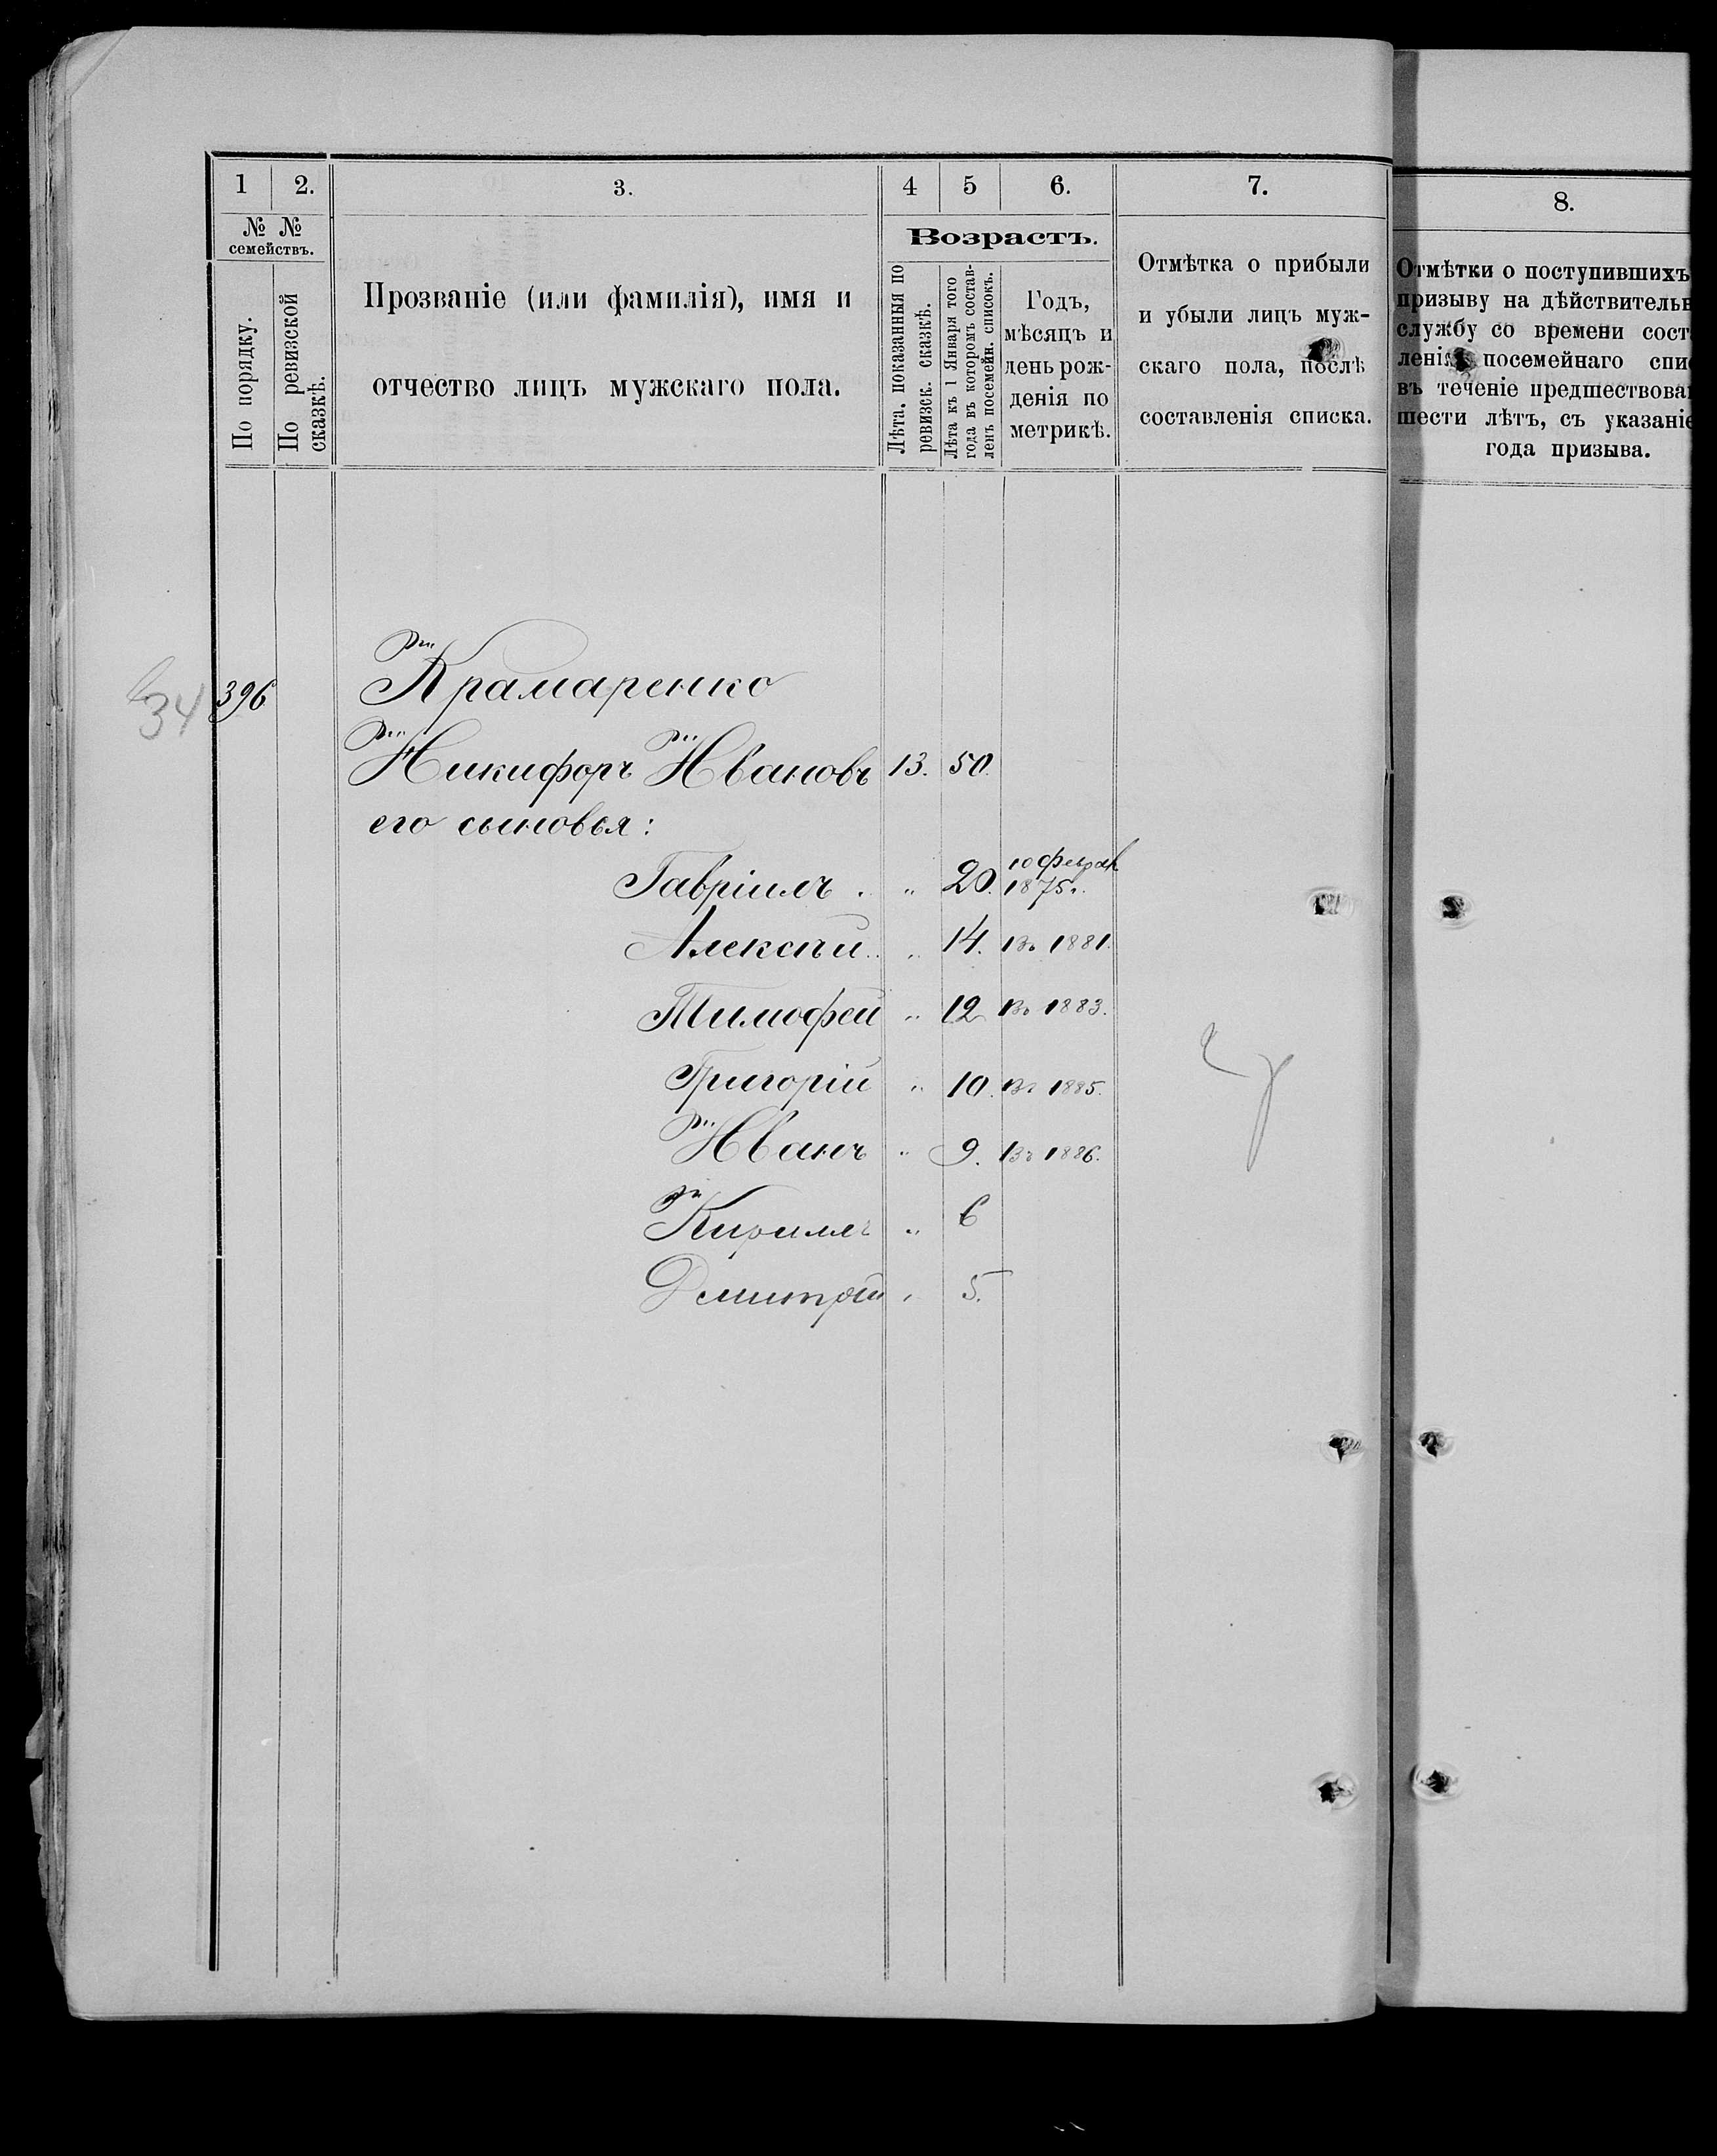 1 2. 3. 4 5 6. 7. 8.
№ № семействъ.
По порядку.
По ревизской сказкѣ.
Прозваніе (или фамилія), имя и
отчество лицъ мужскаго пола.
Возрастъ.
Лѣта, показанныя по
ревизск. сказкѣ.
Лѣта къ 1 Января того
года въ которомъ состав-
ленъ посемейн. списокъ.
Годъ,
мѣсяцъ и
день рож-
денія по
метрикѣ.
Отмѣтка о прибыли
и убыли лицъ муж-
скаго пола, послѣ
составленія списка.
Отмѣтки о поступившихъ
призыву на дѣйствительн
службу со времени сост
ленія посемейнаго спи
въ теченіе предшествова
шести лѣтъ, съ указаніе
года призыва.
34 396 Крамаренко
Никифоръ Ивановъ 13. 50.
его сыновья:
Гавріилъ . " 20. 10 феврал 1875 г.
Алексѣй.. " 14. Въ 1881.
Тимофей " 12 Въ 1883.
Григорій " 10. Въ 1885.
Иванъ " 9. Въ 1886.
Кириллъ " 6
Дмитрій " 5.